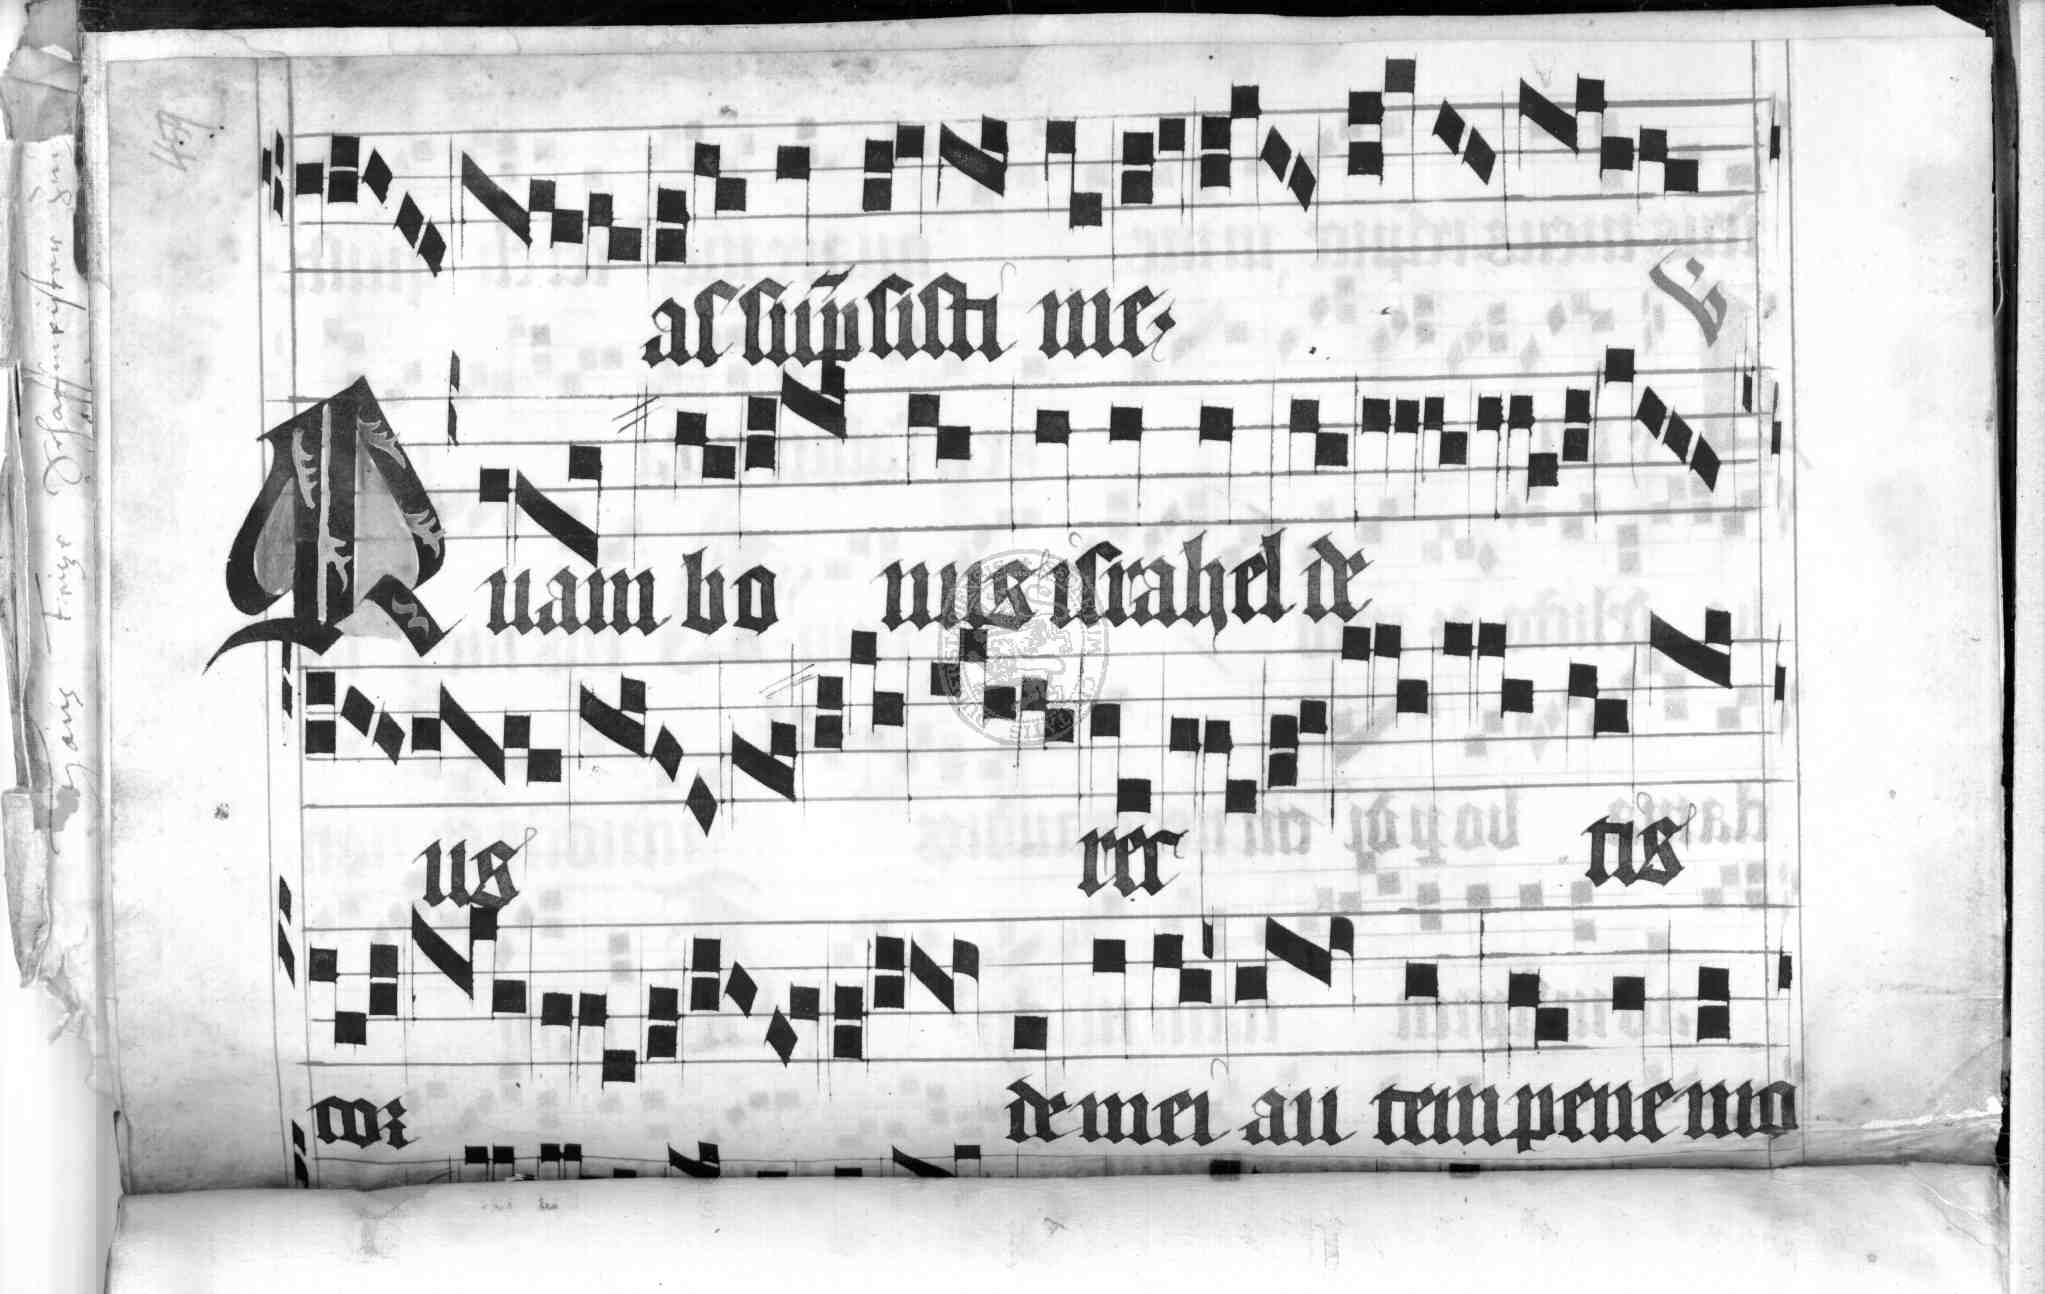 assūpsisti me. V
Quam bo nus israhel de
us rec tis
cor de mei au tem pene mo